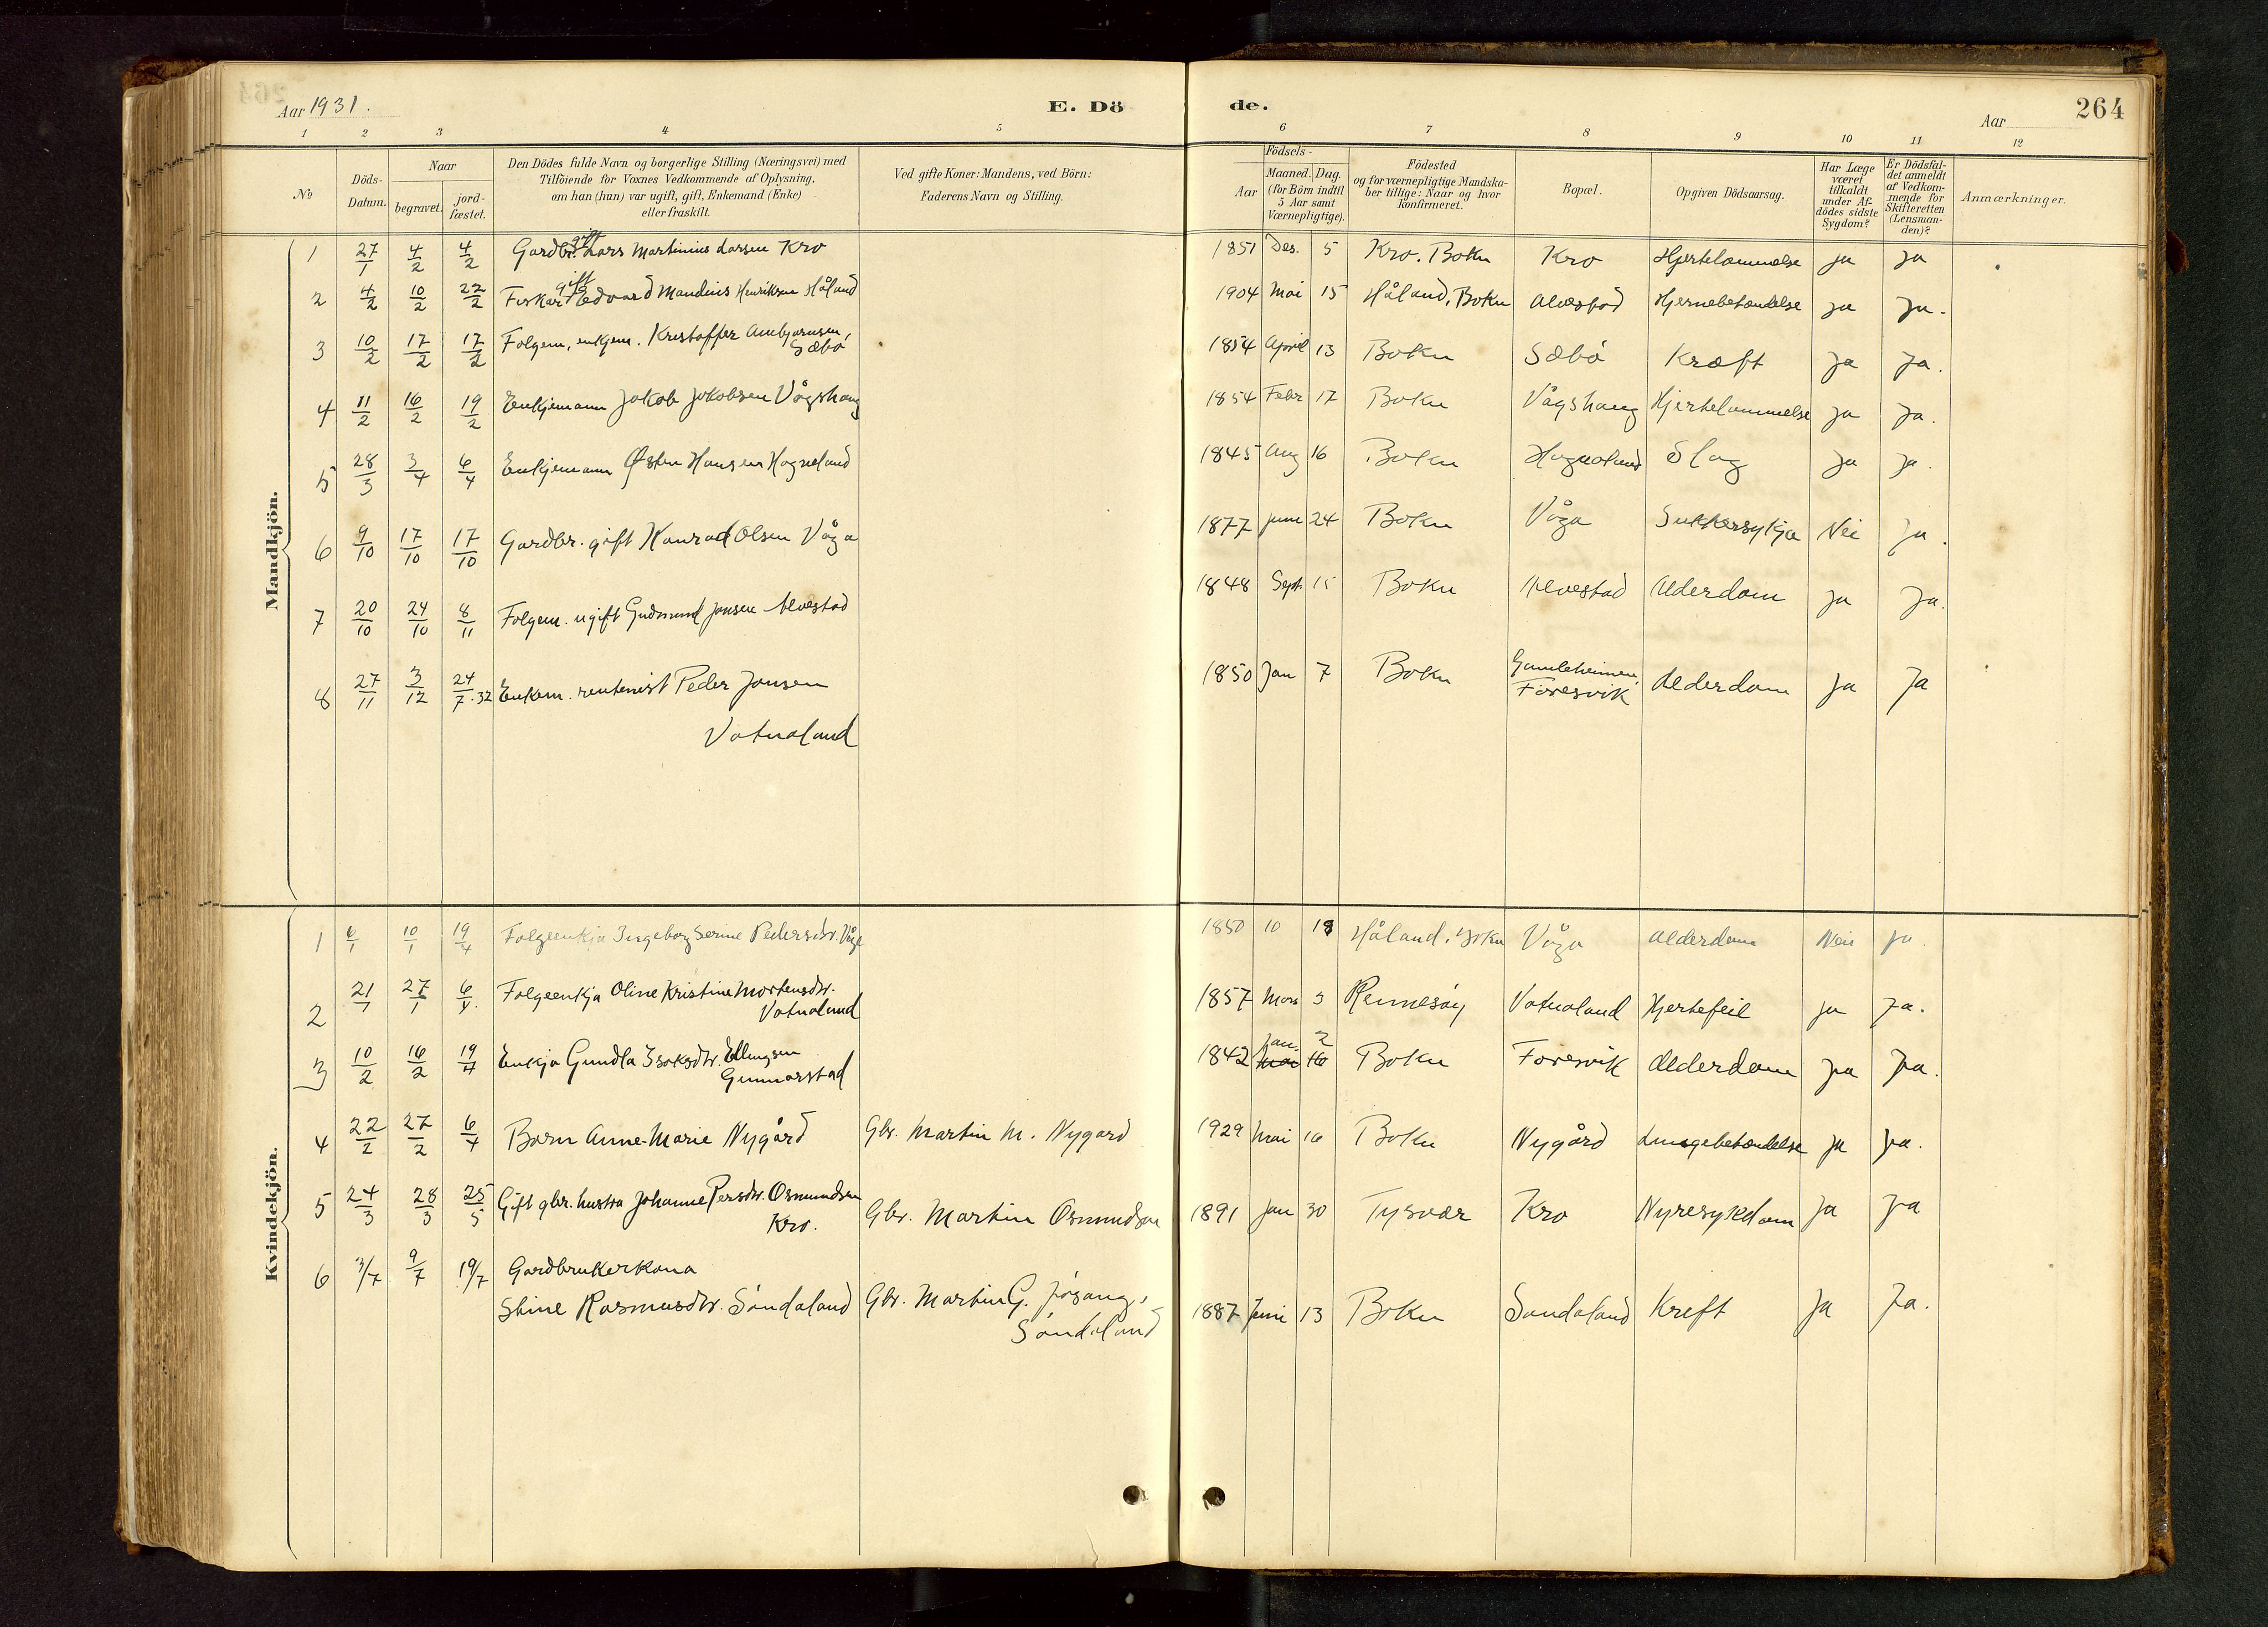 Aar 1931.
E. Dö
de.
Aar
264
1 2 3 4 5 6 7 8 9 10 11 12
No
Döds-Datum.
Naar
begravet.
jord-fæstet.
Den Dödes fulde Navn og borgerlige Stilling (Næringsvei) med
Tilföiende for Voxnes Vedkommende af Oplysning,
om han (hun) var ugift, gift, Enkemand (Enke)
eller fraskilt.
Ved gifte Koner: Mandens, ved Börn:
Faderens Navn og Stilling.
Födsels-
Aar
Maaned. Dag.
(for Börn indtil
5 Aar samt
Værnepligtige).
Födested
og for værnepligtige Mandska-
ber tillige: Naar og hvor
konfirmeret.
Bopæl.
Opgiven Dödsaarsag.
Har Læge
været
tilkaldt
under Af-
dödes sidste
Sygdom?
Er Dödsfal-
det anmeldt
af Vedkom-
mende for
Skifteretten
(Lensman-
den)?
Anmærkninger.
Mandkjön.
1 27/1 4/2 4/2 Gardbr. gift Lars Martinius Larsen Kro 1851 Des. 5 Kro. Bokn Kro Hjertelammelse ja ja
2 4/2 10/2 22/2 Fiskar gift Edvard Mandius Henriksen Håland 1904 Mai 15 Håland, Bokn Alvestad Hjernebetændelse ja ja.
3 10/2 17/2 17/2 Folgem, enkjem. Kristoffer Ambjørnsen,
Sæbø 1854 April 13 Bokn Sæbø Kræft Ja Ja.
4 11/2 16/2 19/2 Enkjemann Jakob Jakobsen Vågshaug 1854 Febr 17 Bokn Vågshaug Hjertelammelse ja Ja.
5 28/3 3/4 6/4 Enkjemann Østen Hansen Hogneland 1845 Aug 16 Bokn Hognaland Slag Ja Ja.
6 9/10 17/10 17/10 Gardbr. gift Konrad Olsen Våga 1877 Juni 24 Bokn Våga Sukkersykja Nei Ja.
7 20/10 24/10 8/11 Folgem. ugift Gudmund Jonsen Alvestad 1848 Sept. 15 Bokn Alvestad Alderdom ja Ja.
8 27/11 3/12 24/7.32 Enkem. rentenist Peder Jonsen
Vatnaland 1850 Jan 7 Bokn Gamleheimen,
Føresvik Alderdom Ja Ja
Kvindekjön.
1 6/1 10/1 19/4 Folgeenkja Ingeborg Serine Pedersdtr. Våga 1850 10 19 Håland, Bokn Våga Alderdom Nei ja.
2 21/1 27/1 6/4. Folgeenkja Oline Kristine Mortensdtr.
Vatnaland 1857 Mars 3 Rennesøy Vatnaland Hjertefeil ja Ja.
3 10/2 16/2 19/4 Enkja Gundla Isaksdtr. Ellingsen
Gunnarstad 1842 Jan. 2 Bokn Føresvik Alderdom ja Ja.
4 22/2 27/2 6/4 Barn Anne-Marie Nygård Gbr. Martin M. Nygård 1929 Mai 16 Bokn Nygård Lungebetændelse ja ja.
5 24/3 28/3 25/5 Gift gbr. hustru Johanne Persdtr. Osmundsen
Kro. Gbr. Martin Osmundsen 1891 Jan 30 Tysvær Kro Nyresykdom ja ja
6 3/7 9/7 19/7 Gardbrukerkona
Stine Rasmusdtr. Søndaland Gbr. Martin G. Jøsang,
Søndaland 1887 Juni 13 Bokn Søndaland Kreft Ja Ja.